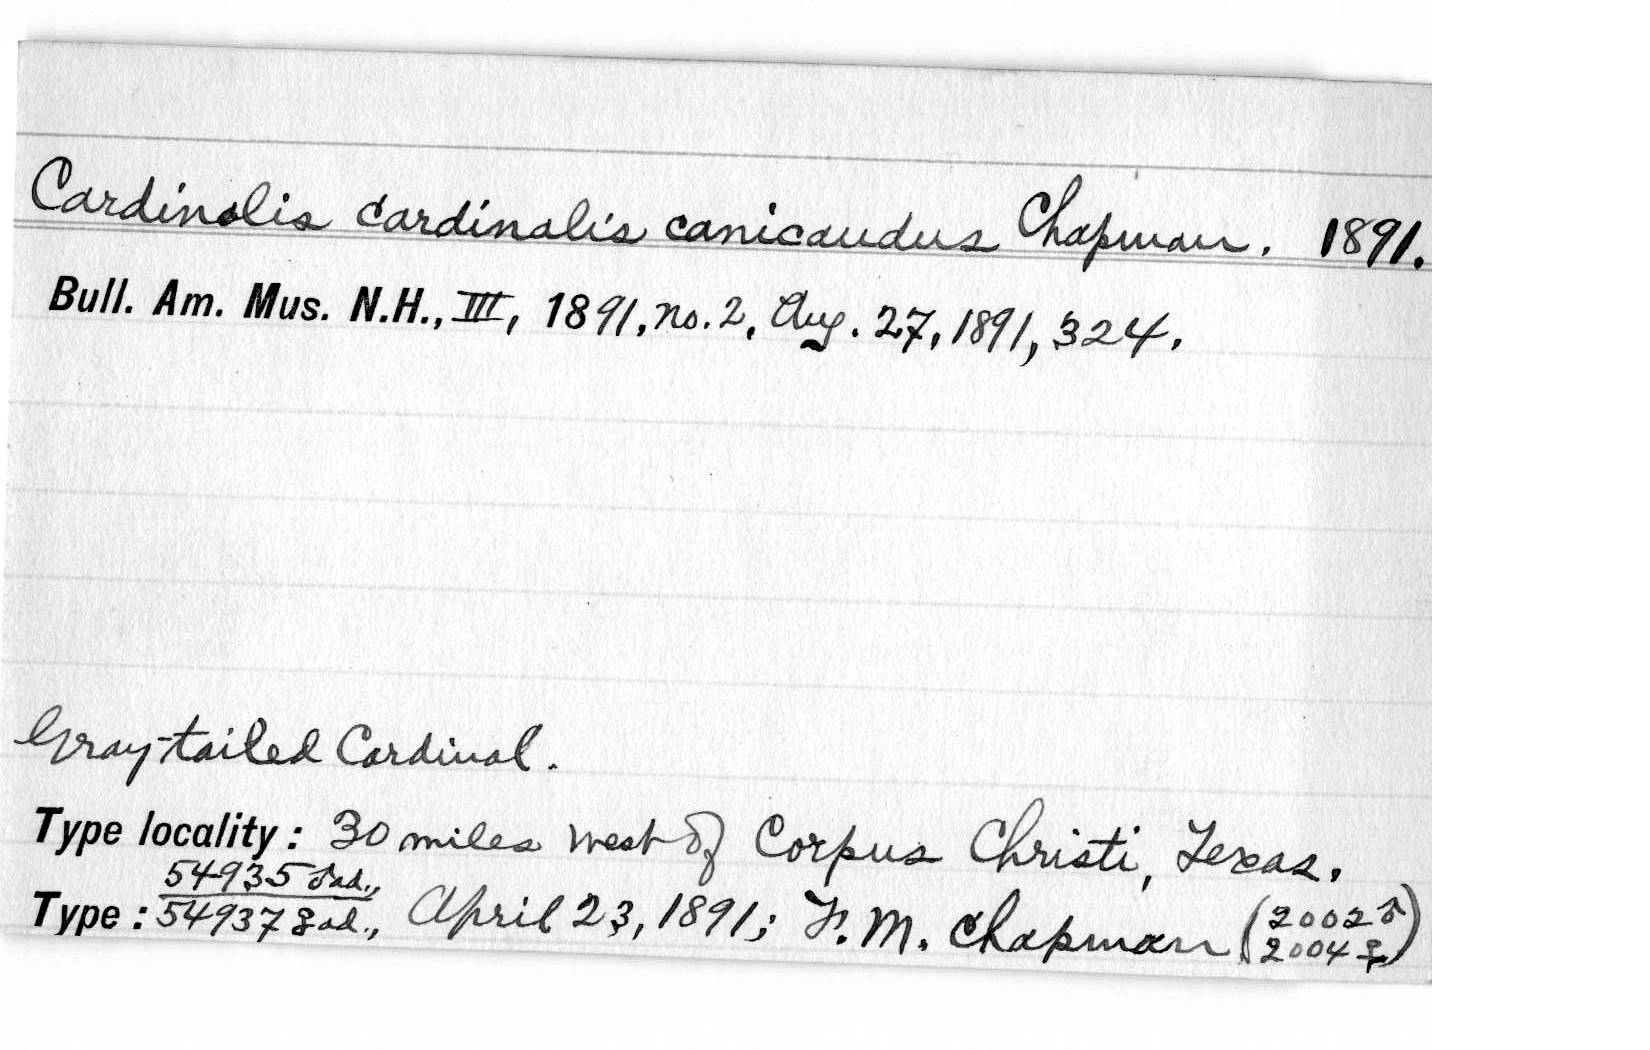 Cardinalis cardinalis canicaudus Chapman. 1891.
Bull. Am. Mus. N.H., III, 1891, no. 2, Aug. 27, 1891, 324.
Gray-tailed Cardinal.
Type locality: 30 miles west of Corpus Christi, Texas.
54935 ♂ ad.,
Type: 54937 ♀ ad., April 23, 1891; F. M. Chapman (2002 ♂
2004 ♀)